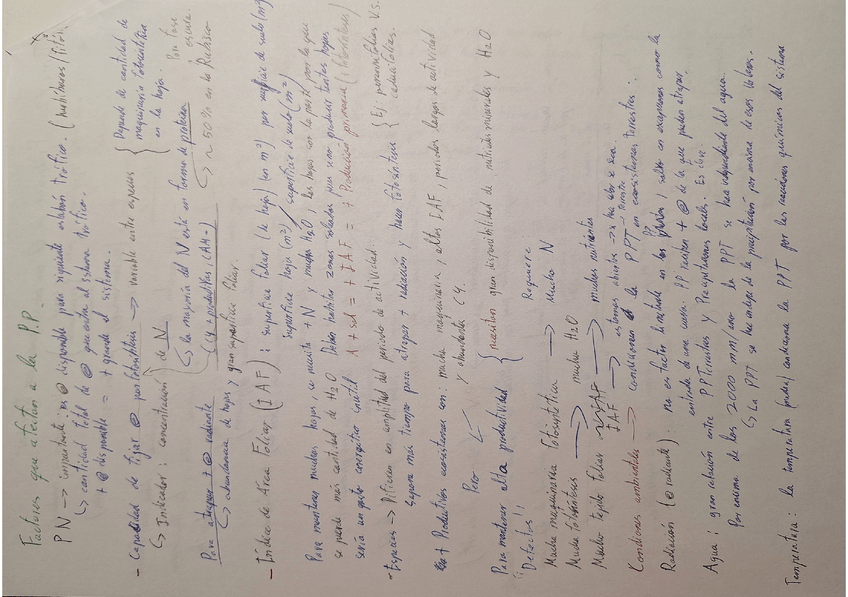 Factores que afectan a la P.P.
PN → importante: es @ disponible para siguiente eslabón trófico. (herbívoros/
↳ cantidad total de @ que entra al sistema trófico.
+ @ disponible = + grande el sistema.
- Capacidad de fijar @ por fotosíntesis → variable entre especies { Depende de cantidad de
maquinaria fotosintética
en la hoja.
Por fase
oscura.
↳ Indicador: concentración de N
↳ la mayoría del N está en forma de proteína
(C4 + productivos, CAM -) ↳ ~50% en la Rubisco
Para atrapar + @ radiante
↳ abundancia de hojas y gran superficie foliar.
- Índice de Área Foliar (IAF): superficie foliar (de hoja) (en m²) por superficie de suelo (m²)
Superficie hoja (m²) / superficie de suelo (m²)
Para mantener muchas hojas, se necesita + N y mucha H2O, las hojas son la parte por la que
se pierde más cantidad de H2O. Deben habitar zonas soleadas pues sería producir tantas hojas
sería un gasto energético inútil. A + sol = + IAF = + Producción primaria
- Especies → Difieren en amplitud del periodo de actividad. { Ej perennifolias Vs.
caducifolias.
Supone más tiempo para atrapar + radiación y hacer fotosíntesis
+ Productivos ecosistemas con: mucha maquinaria, altos IAF, periodos largos de actividad
y abundancia C4.
Pero ↙
Para mantener alta productividad { necesitan gran disponibilidad de nutrientes minerales y H2O
Defectos: Requiere:
Mucha maquinaria fotosintética → Mucho N
Mucha fotosíntesis → mucha H2O
Mucho tejido foliar → muchos nutrientes
IAF → estomas abiertos →
Condiciones ambientales → condicionan la PPT en ecosistemas terrestres.
Radiación (@ radiante): no es factor limitante en las PP, salvo en excepciones como la
entrada de una cueva. PP reciben + @ de la que pueden atrapar.
Agua: gran relación entre PPTerrestres y Precipitaciones locales. Es clave.
Por encima de los 2000 mm/año la PPT se hace independiente del agua.
↳ La PPT se hace indep de la precipitación por encima de esos valores.
Temperatura: la temperatura condiciona la PPT por las reacciones químicas del sistema